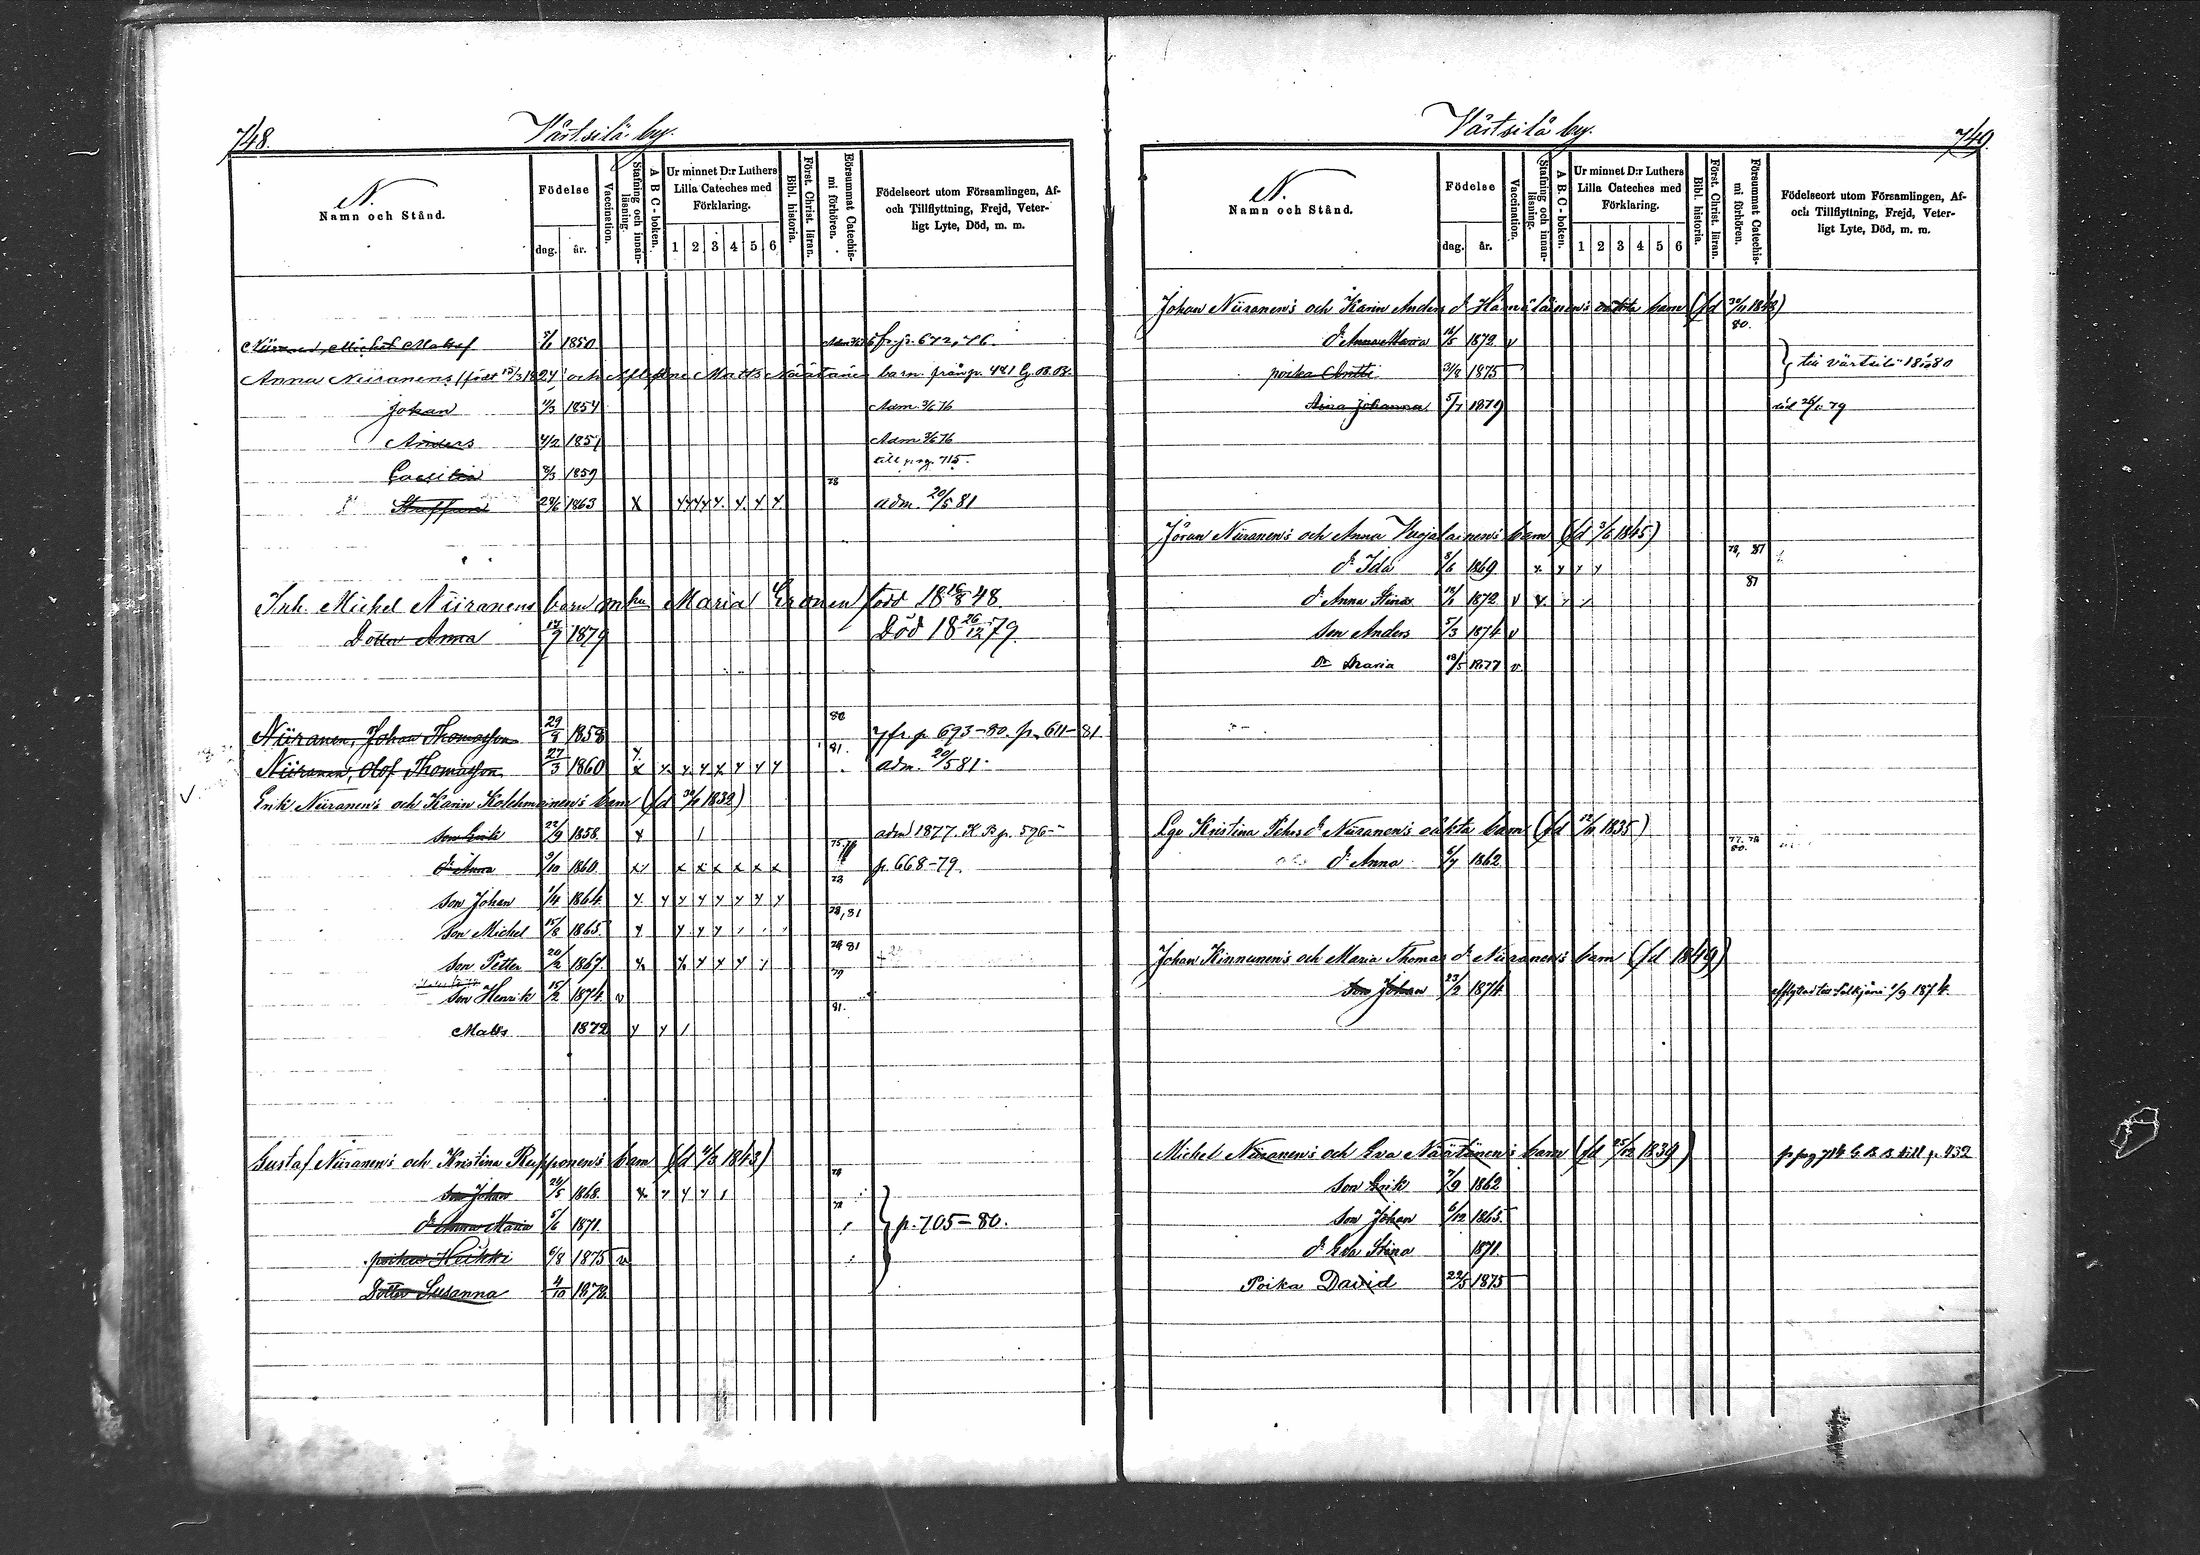 748.
Värtsilä by.
N.
Namn och Stånd.
Födelse
dag. år.
Vaccination.
Stafning och innan-läsning.
A B C-boken.
Ur minnet D:r Luthers
Lilla Cateches med
Förklaring.
1 2 3 4 5 6
Bibl. historia.
Först. Christ. läran.
Försummat Catechis-mi förhören.
Födelseort utom Församlingen, Af-
och Tillflyttning, Frejd, Veter-
ligt Lyte, Död, m. m.
Niiranen, Michel Matss 1850 fr p. 672, 76.
Anna Niiranens (född 1824) och Aflidne Matts Näätänens barn från p. 481 G. B. B.
Johan 1/3 1854 Adm 76
Anders 4/2 1857 Adm 76
till pag. 715.
Caecilia 8/3 1859
78
Staffan 29/6 1863 x adm. 20/5 81
Inh. Michel Niiranens barn m hu Maria Eronen född 18 16/8 48.
Dotter Anna 17/9 1879 Död 18 26/12 79.
80
Niiranen, Johan Thomasson 29/9 1858 fr p. 693-80. p. 611-81
81.
Niiranen, Olof Thomasson 27/3 1860 adm. 20/5 81.
Erik Niiranen's och Karin Kolehmainen's barn (fd 1832)
son Erik 22/9 1858. adm 1877. K B p. 596
75, 76
d:r Anna 9/10 1860. p. 668-79.
73
son Johan 1/4 1864.
78, 81
son Michel 15/8 1865.
79 81
son Petter 20/2 1867.
79
son Henrik 15/2 1874. v
81.
Matts 1872
Gustaf Niiranen's och Kristina Repponen's barn (fd 9/3 1843)
78
son Johan 29/5 1868.
78
d:r Anna Maria 5/6 1871. p. 705-80.
poika Heikki 6/8 1875 v
Dotter Susanna 4/10 1878.
749.
Värtsilä by.
N.
Namn och Stånd.
Födelse
dag. år.
Vaccination.
Stafning och innan-läsning.
A B C-boken.
Ur minnet D:r Luthers
Lilla Cateches med
Förklaring.
1 2 3 4 5 6
Bibl. historia.
Först. Christ. läran.
Försummat Catechis-mi förhören.
Födelseort utom Församlingen, Af-
och Tillflyttning, Frejd, Veter-
ligt Lyte, Död, m. m.
Johan Niiranen's och Karin Anders d:r Hämäläinen's barn (fd 1843)
80.
d:r Anna Maria 1872 v
till Värtsilä 1880
poika Antti 1875
Aina Johanna 5/1 1879 död 79
Jöran Niiranen's och Anna Kuojalainen's barn (fd 3/6 1845)
78, 81
d:r Ida 8/6 1869
81
d:r Anna Stina 1872 v
son Anders 5/3 1874 v
Dr Maria 18/5 1877 v
Lge Kristina Pehrs d:r Niiranen's oäkta barn (fd 1835)
77. 78
80.
d:r Anna 6/7 1862
Johan Kinnunen's och Maria Thomas d:r Niiranen's barn (fd 1849)
son Johan 23/2 1874 afflyttad till Pälkjärvi 1/9 1874.
Michel Niiranen's och Eva Näätänen's barn (fd 25/12 1839) fr pag 784 G. B. B. till p. 432
son Erik 7/9 1862
son Johan 6/12 1865.
d:r Eva Stina 1871.
Poika David 29/5 1875